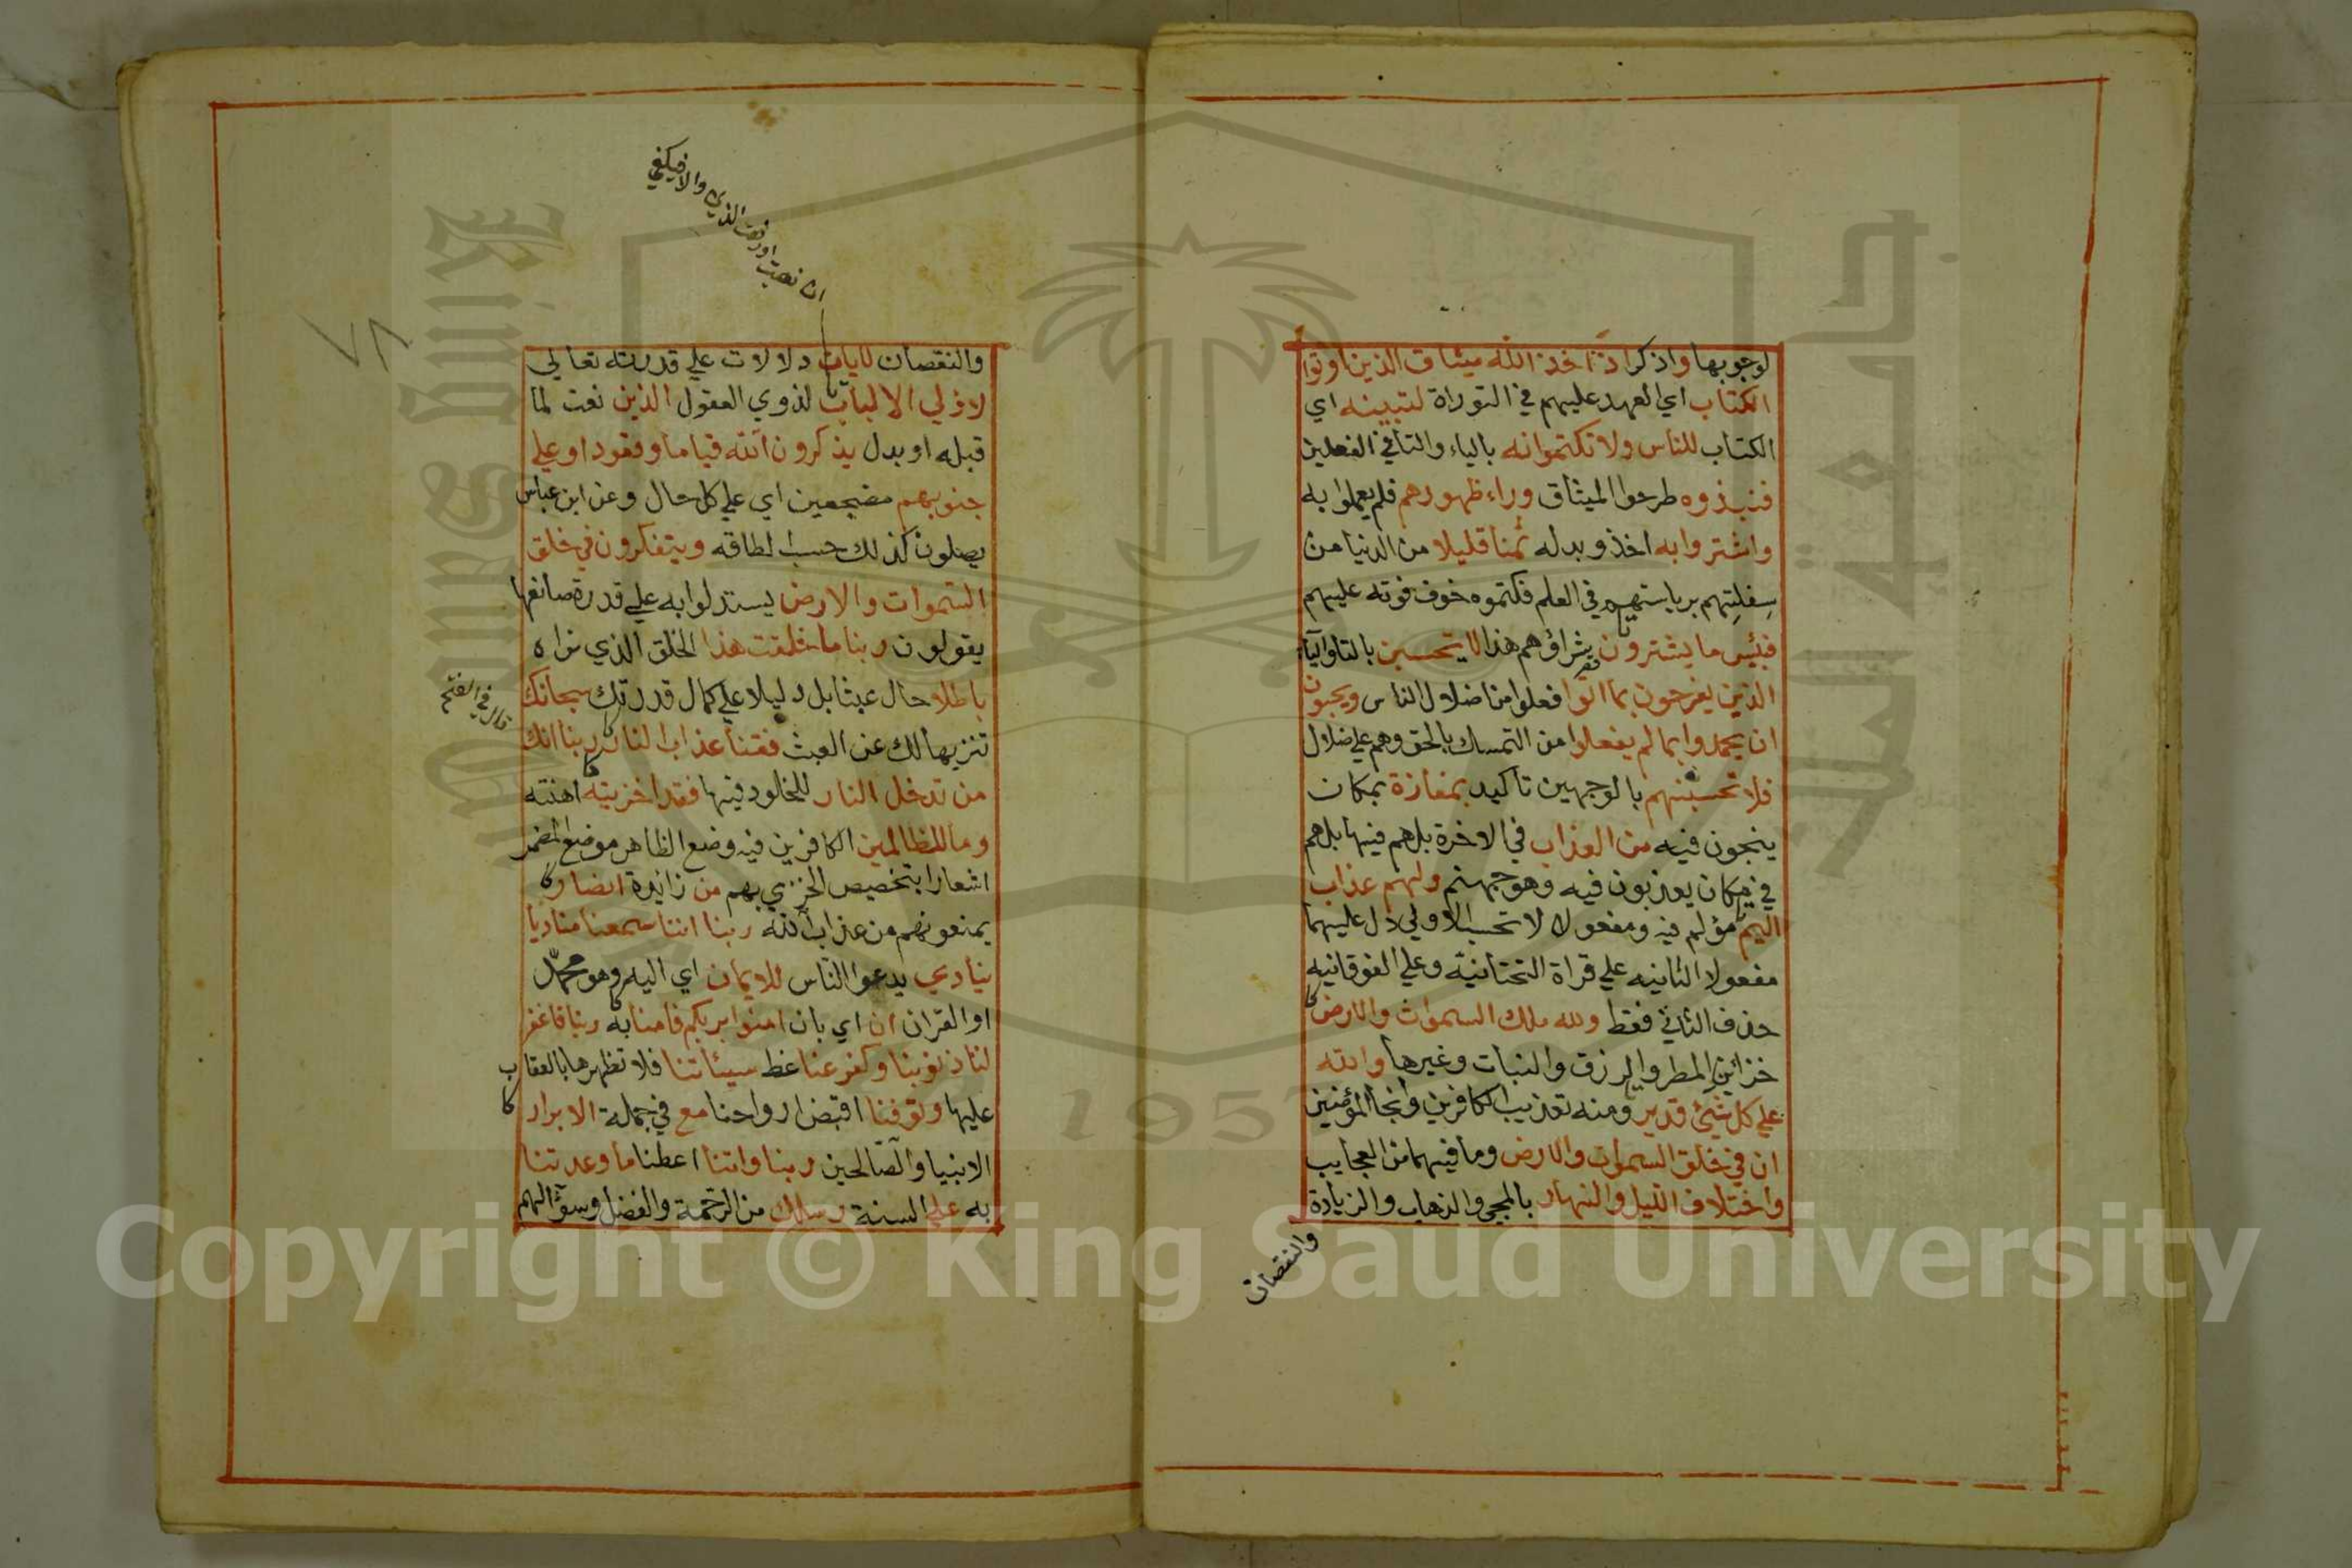 لوجوبها واذكر اذ اخذ الله ميثاق الذين اوتوا
الكتاب اي العهد عليهم في التوراة لتبيننه اي
الكتاب للناس ولا تكتموانه بالياء والتا في الفعلين
فنبذوه طرحوا الميثاق وراء ظهورهم فلم يعملوا به
واشتروا به اخذو بدله ثمنا قليلا من الدنيا من
سفلتهم برياستهم في العلم فكتموه خوف فوته عليهم
فبئس ما يشترون شراؤهم هذا لا يحسبن بالتا واليآء
الذين يفرحون بما اتوا فعلوا من اضلال الناس ويحبون
ان يحمدوا بما لم يفعلوا من التمسك بالحق وهم علي ضلال
فلا تحسبنهم بالوجهين تاكيد بمفازة بمكان
ينجون فيه من العذاب في الاخرة بل هم فيها بل هم
في مكان يعذبون فيه وهو جهنم ولهم عذاب
اليم مؤلم فيه ومفعولا لا تحسب الاولي دل عليهما
مفعولا الثانيه علي قراة التحتانيّة وعلي الفوقانيه
حذف الثاني فقط ولله ملك السموات والارض
خزائن المطر والرزق والنبات وغيرها والله
علي كل شيئ قدير ومنه تعذيب الكافرين وانجا المؤمنين
ان في خلق السموات والارض وما فيهما من العجايب
واختلاف الليل والنهار بالمجي والذهاب والزيادة
والنقصان
ان نصبت او رفعت الذين والا فيكفي
والنقصان لايات دلالات علي قدرته تعالي
لاولي الالباب لذوي العقول الذين نعت لما
قبله او بدل يذكرون الله قياما وقعودا وعلي
جنوبهم مضجعين اي علي كل حال وعن ابن عباس
يصلون كذلك حسب لطاقه ويتفكرون في خلق
السموات والارض يستدلوا به علي قدرة صانعها
يقولون ربنا ما خلقت هذا الخلق الذي نراه
باطلا حال عبثا بل دليلا علي كمال قدرتك سبحانك
قال في الفتح
تنزيها لك عن العبث فقنا عذاب النار ربنا انك
من تدخل النار للخلود فيها فقد اخزيته اهنته
وما للظالمين الكافرين فيه وضع الظاهر موضع المضمر
اشعارا بتخصيص الخزي بهم من زائدة انصار
يمنعونهم من عذاب الله ربنا اننا سمعنا مناديا
ينادي يدعوا الناس للايمان اي اليه وهو محمد
او القران ان اي بان امنوا بربكم فامنا به ربنا فاغفر
لنا ذنوبنا وكفر عنا غط سيئاتنا فلا تظهرها بالعقاب
عليها وتوفنا اقبض ارواحنا مع في جملة الابرار
الانبيا والصالحين ربنا واتنا اعطنا ما وعدتنا
به علي السنة رسلك من الرحمة والفضل وسؤالهم
٧٨
Copyright © King Saud University
1957